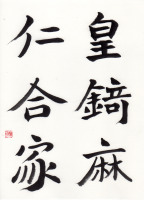 皇錡麻
仁合家